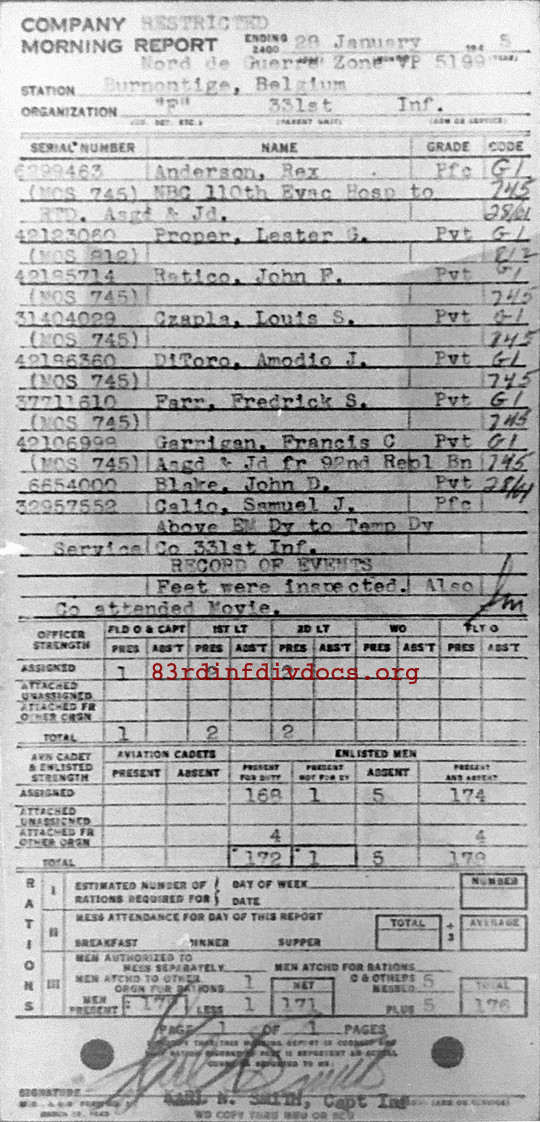 COMPANY RESTRICTED
MORNING REPORT ENDING 2400 28 January 194 5
Nord de Guerre Zone VP 5199
STATION Burnontige, Belgium
ORGANIZATION "F" 331st Inf.
(CO. DET. ETC.) (PARENT UNIT) (ARM OR SERVICE)
SERIAL NUMBER NAME GRADE CODE
6299463 Anderson, Rex Pfc G1
(MOS 745) NBC 110th Evac Hosp to 745
RTD. Asgd & Jd. 28/61
42123060 Proper, Lester G. Pvt G1
(MOS 812) 812
42185714 Ratico, John F. Pvt G1
(MOS 745) 745
31404029 Czapla, Louis S. Pvt G1
(MOS 745) 745
42186360 DiToro, Amodio J. Pvt G1
(MOS 745) 745
37711610 Farr, Fredrick S. Pvt G1
(MOS 745) 745
42106998 Garrigan, Francis C Pvt G1
(MOS 745) Asgd & Jd fr 92nd Repl Bn 745
6654000 Blake, John D. Pvt 28/61
32957552 Calio, Samuel J. Pfc
Above EM Dy to Temp Dy
Service Co 331st Inf.
RECORD OF EVENTS
Feet were inspected. Also
Co attended Movie.
OFFICER STRENGTH FLD O & CAPT 1ST LT 2D LT WO FLT O
PRES ABS'T PRES ABS'T PRES ABS'T PRES ABS'T PRES ABS'T
ASSIGNED 1 83rdinfdivdocs.org
ATTACHED UNASSIGNED
ATTACHED FR OTHER ORGN
TOTAL 1 2 2
AVN CADET & ENLISTED STRENGTH AVIATION CADETS ENLISTED MEN
PRESENT ABSENT PRESENT FOR DUTY PRESENT NOT FOR DY ABSENT PRESENT AND ABSENT
ASSIGNED 168 1 5 174
ATTACHED UNASSIGNED
ATTACHED FR OTHER ORGN 4 4
TOTAL 172 1 5 178
RATIONS
I ESTIMATED NUMBER OF RATIONS REQUIRED FOR { DAY OF WEEK DATE NUMBER
II MESS ATTENDANCE FOR DAY OF THIS REPORT TOTAL ÷ 3 AVERAGE
BREAKFAST DINNER SUPPER
III MEN AUTHORIZED TO MESS SEPARATELY MEN ATCHD FOR RATIONS
MEN ATCHD TO OTHER ORGN FOR RATIONS 1 NET & OTHERS MESSED 5 TOTAL
MEN PRESENT LESS 1 171 PLUS 5 176
PAGE 1 OF 1 PAGES
SIGNATURE KARL N. SMITH, Capt Inf (ARM OR SERVICE)